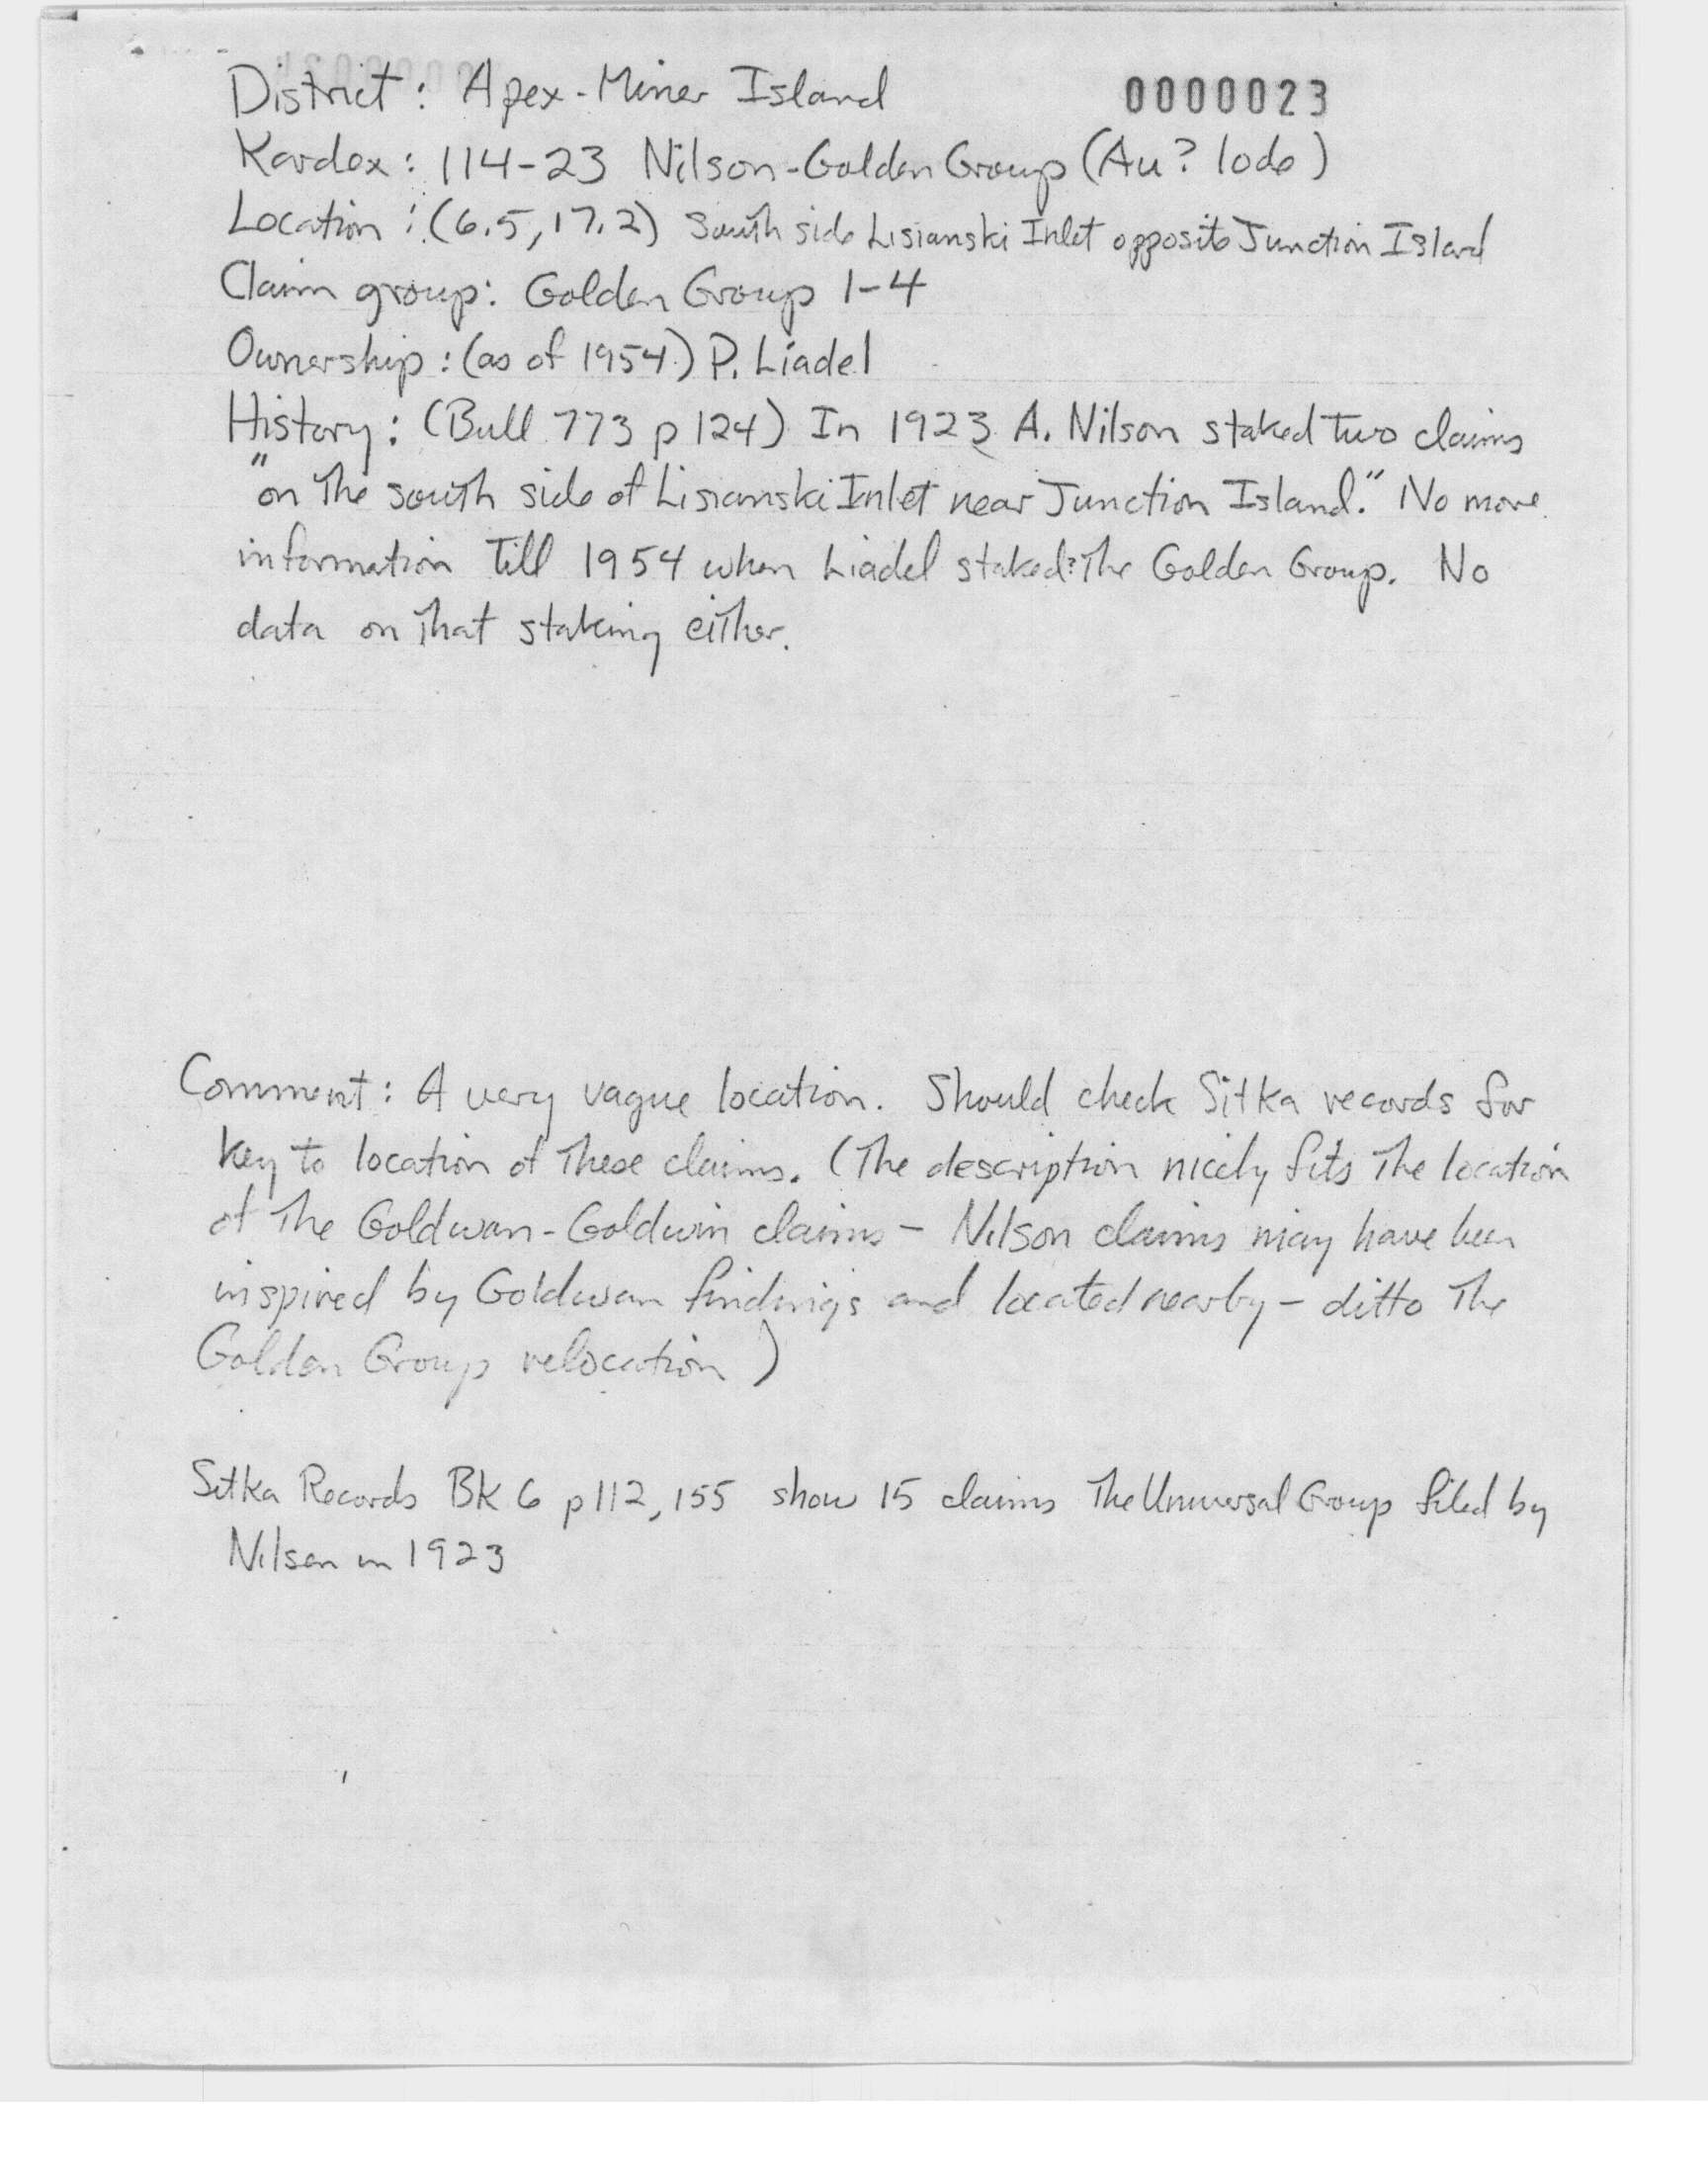 District: Apex-Miner Island 0000023
Kardex: 114-23 Nilson-Golden Group (Au? lode)
Location: (6.5, 17.2) South side Lisianski Inlet opposite Junction Island
Claim group: Golden Group 1-4
Ownership: (as of 1954) P. Liadel
History: (Bull 773 p 124) In 1923 A. Nilson staked two claims
"on the south side of Lisianski Inlet near Junction Island." No more
information till 1954 when Liadel staked? the Golden Group. No
data on that staking either.
Comment: A very vague location. Should check Sitka records for
key to location of these claims. (The description nicely fits the location
of the Goldwan-Goldwin claims - Nilson claims may have been
inspired by Goldwan findings and located nearby - ditto the
Golden Group relocation)
Sitka Records Bk 6 p 112, 155 show 15 claims The Universal Group filed by
Nilson in 1923